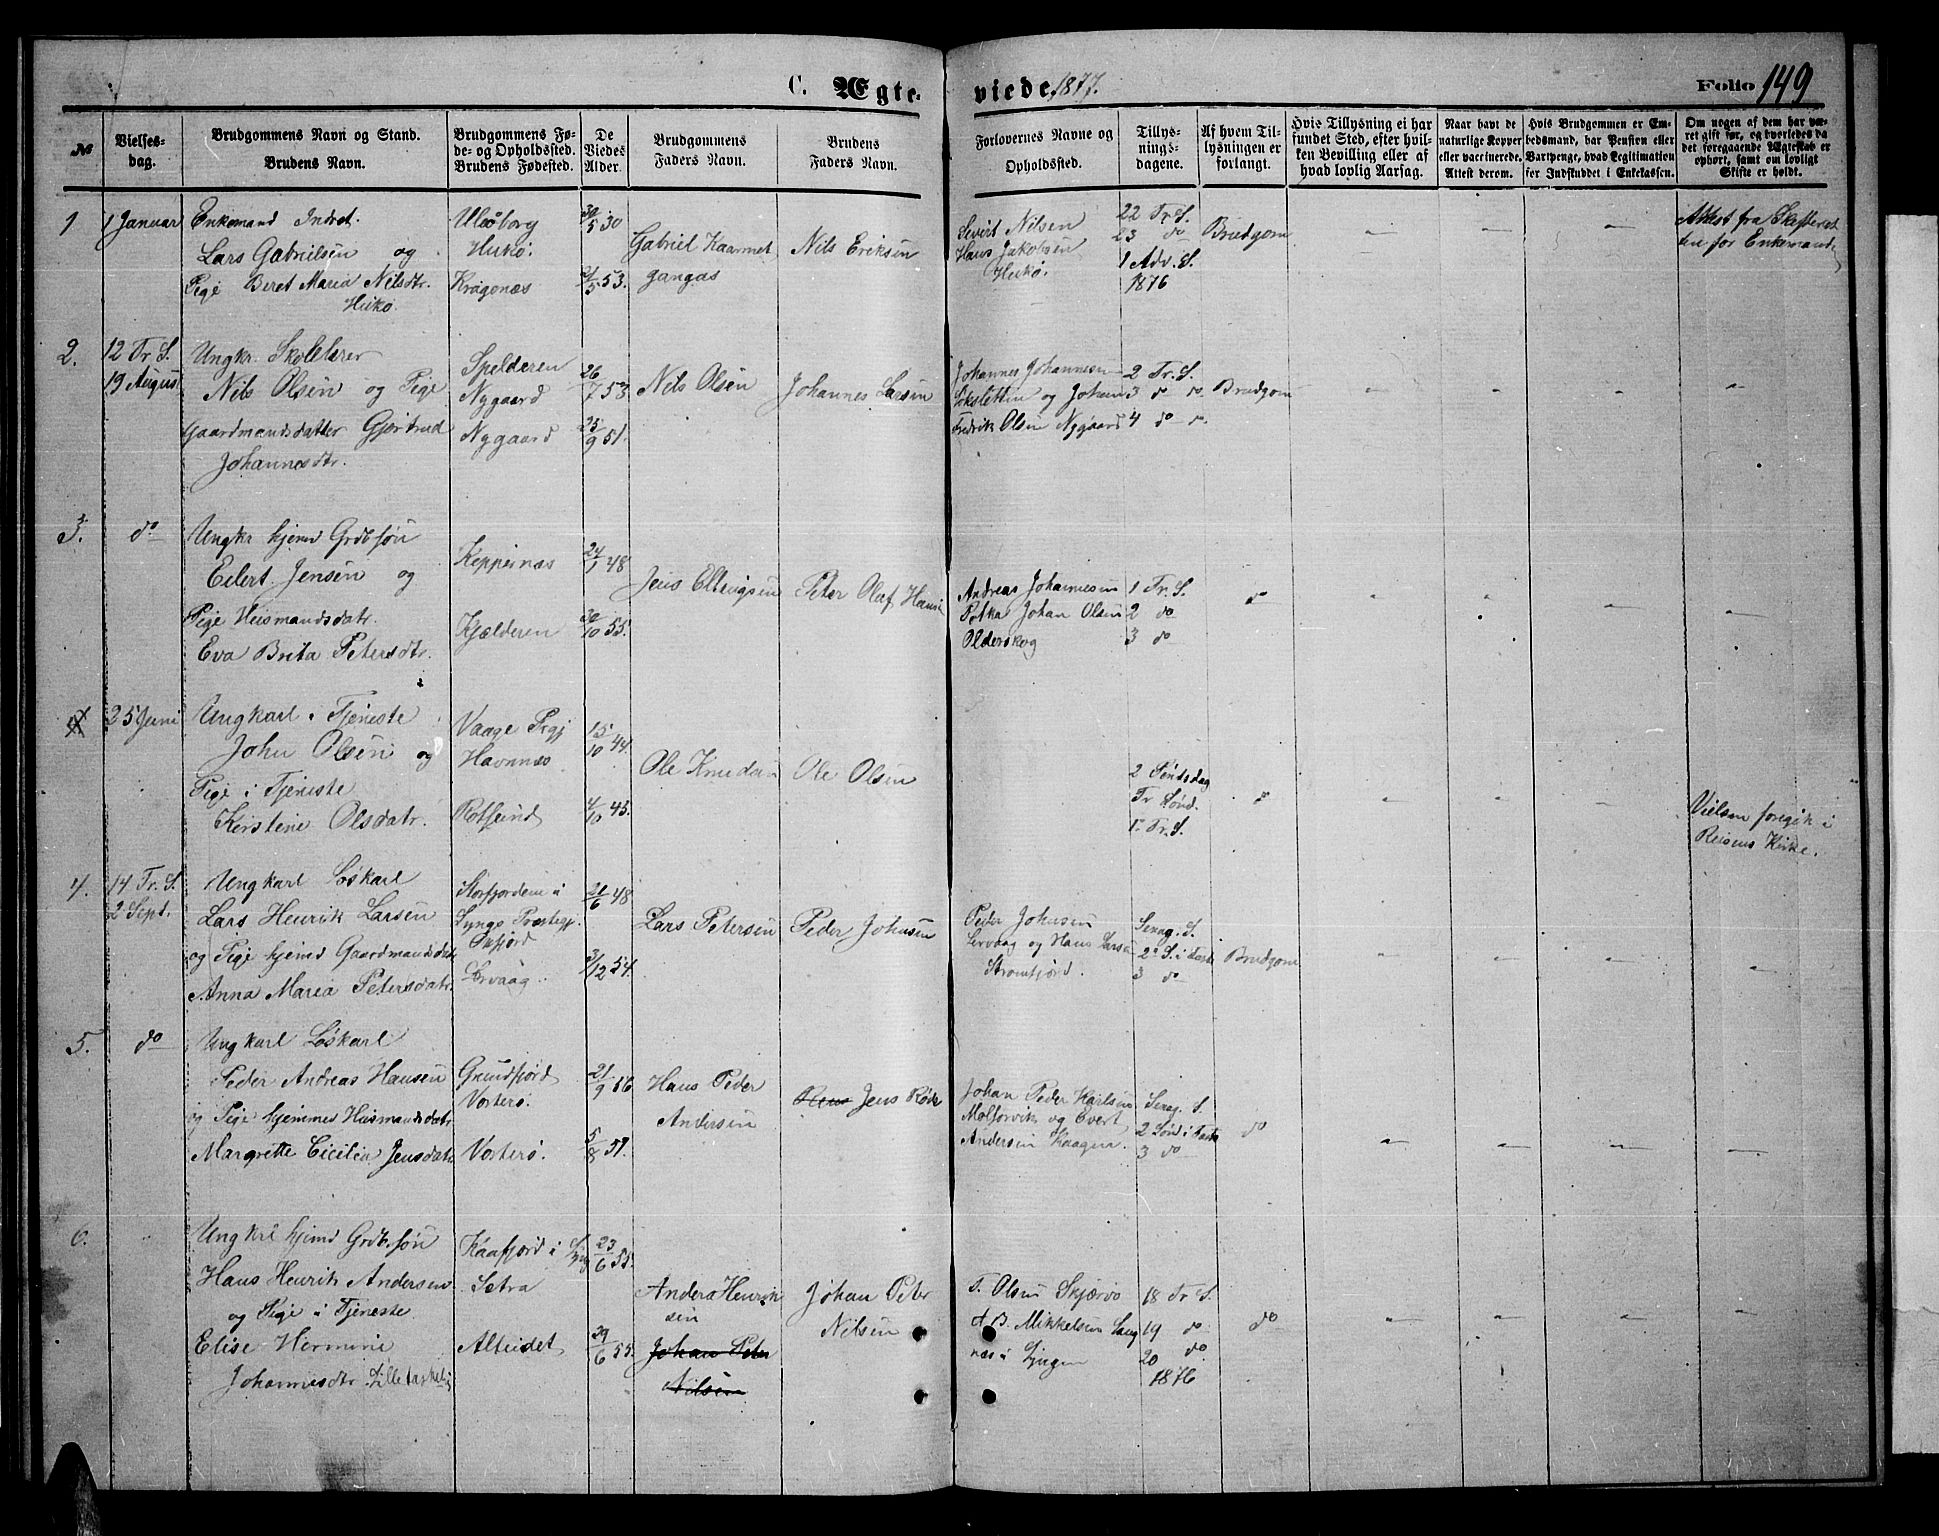 C. Ægte-
viede 1877.
Folio 149
№
Vielses-
dag.
Brudgommens Navn og Stand.
Brudens Navn.
Brudgommens Fø-
de- og Opholdssted.
Brudens Fødested.
De
Viedes
Alder.
Brudgommens
Faders Navn.
Brudens
Faders Navn.
Forlovernes Navne og
Opholdssted.
Tillys-
nings-
dagene.
Af hvem Til-
lysningen er
forlangt.
Hvis Tillysning ei har
fundet Sted, efter hvil-
ken Bevilling eller af
hvad lovlig Aarsag.
Naar havt de
naturlige Kopper
eller vaccinerede.
Attest derom.
Hvis Brudgommen er Em-
bedsmand, har Pension eller
Vartpenge, hvad Legitimation
for Indskuddet i Enkekassen.
Om nogen af dem har væ-
ret gift før, og hvorledes da
det foregaaende Ægteskab er
ophørt, samt om lovligt
Skifte er holdt.
1
1 Januar
Enkemand Indrst.
Lars Gabrielsen og
Pige Beret Maria Nilsdtr.
Hukø.
Uleåborg
Hukø.
Kragenæs
30/5 30
2/5 53.
Gabriel Kaarmet
gangas
Nils Eriksen
Sivert Nilsen
Hans Jakobsen
Hukø.
22 Tr. S.
23 do
1 Adv. S.
1876
Brudgom
Attest fra Skifteret
ten for Enkemand
2.
12 Tr. S.
19 August
Ungkr. Skolelærer
Nils Olsen og Pige
Gaardmandsdatter Gjertrud
Johannesdtr.
Spelderen
Nygaard
Nygaard
26/7 53
25/9 51.
Nils Olsen
Johannes Larsen
Johannes Johannesen
og Johan
Fredrik Olsen Nygaard
2 Tr. S.
3 do
4 do
Brudgom
3.
do
Ungkr hjemd Grdbsøn
Eilert Jensen og
Pige Husmandsdatr.
Eva Brita Petersdtr.
Keppernæs
Kjælderen
24/1 48
30/10 55.
Jens Ellevigsen
Peter Olaf Hansen
Andreas Johannesen
Potka Johan Olsen
Olderskog
1 Tr. S.
2 do
3 do
do
4
25 Juni
Ungkarl i Tjeneste
John Olsen og
Pige i Tjeneste
Kerstine Olsdatr.
Vaage Prgj
Havnnæs
Rotsund
15/10 44.
4/10 45.
Ole Knudsen
Ole Olsen
2 Søndag
Tr Sønd.
1. Tr. S.
do
Vielsen foregik i
Reisens Kirke.
4.
14 Tr. S.
2 Sept.
Ungkarl Løskarl
Lars Henrik Larsen
og Pige hjemd Gaardmandsdatr
Anna Maria Petersdatr.
Storfjorden i
Lyngs Præstegj.
Oxfjord
Lervaag
21/6 48
3/12 54.
Lars Petersen
Peder Johnsen
Peder Johnsen
Lervaag og Hans Larsen
Strømfjord.
Sexag. S.
2 S. i Faste
3 do
Brudgom
5.
do
Ungkarl Løskarl
Peder Andreas Hansen
og Pige hjemme Husmandsdatr
Margrette Cicilia Jensdatr
Grundfjord
Vorterø.
Vorterø.
21/9 56
5/8 57.
Hans Peder
Andersen
Jens Røde
Johan Peder Karlsen
Molforvik og Evert
Andersen Kaagen.
Sexag. S.
2 Sønd i Faste
3 do
do
6.
Ungkrl hjemd Grdb.søn
Hans Henrik Andersen
og Pige i Tjeneste
Elise Hermine
Johannesdtr.
Kaafjord i Lyng
Sætra
Alteidet
23/6 55.
29/6 55.
Anders Henrik
sen
Johan Peter
Nilsen
Johan Peter
Nilsen
T. Olsen Skjærvø
A B. Mikkelsen Lang
næs i Lyngen
18 Tr. S.
19 do
20 do
1876
do